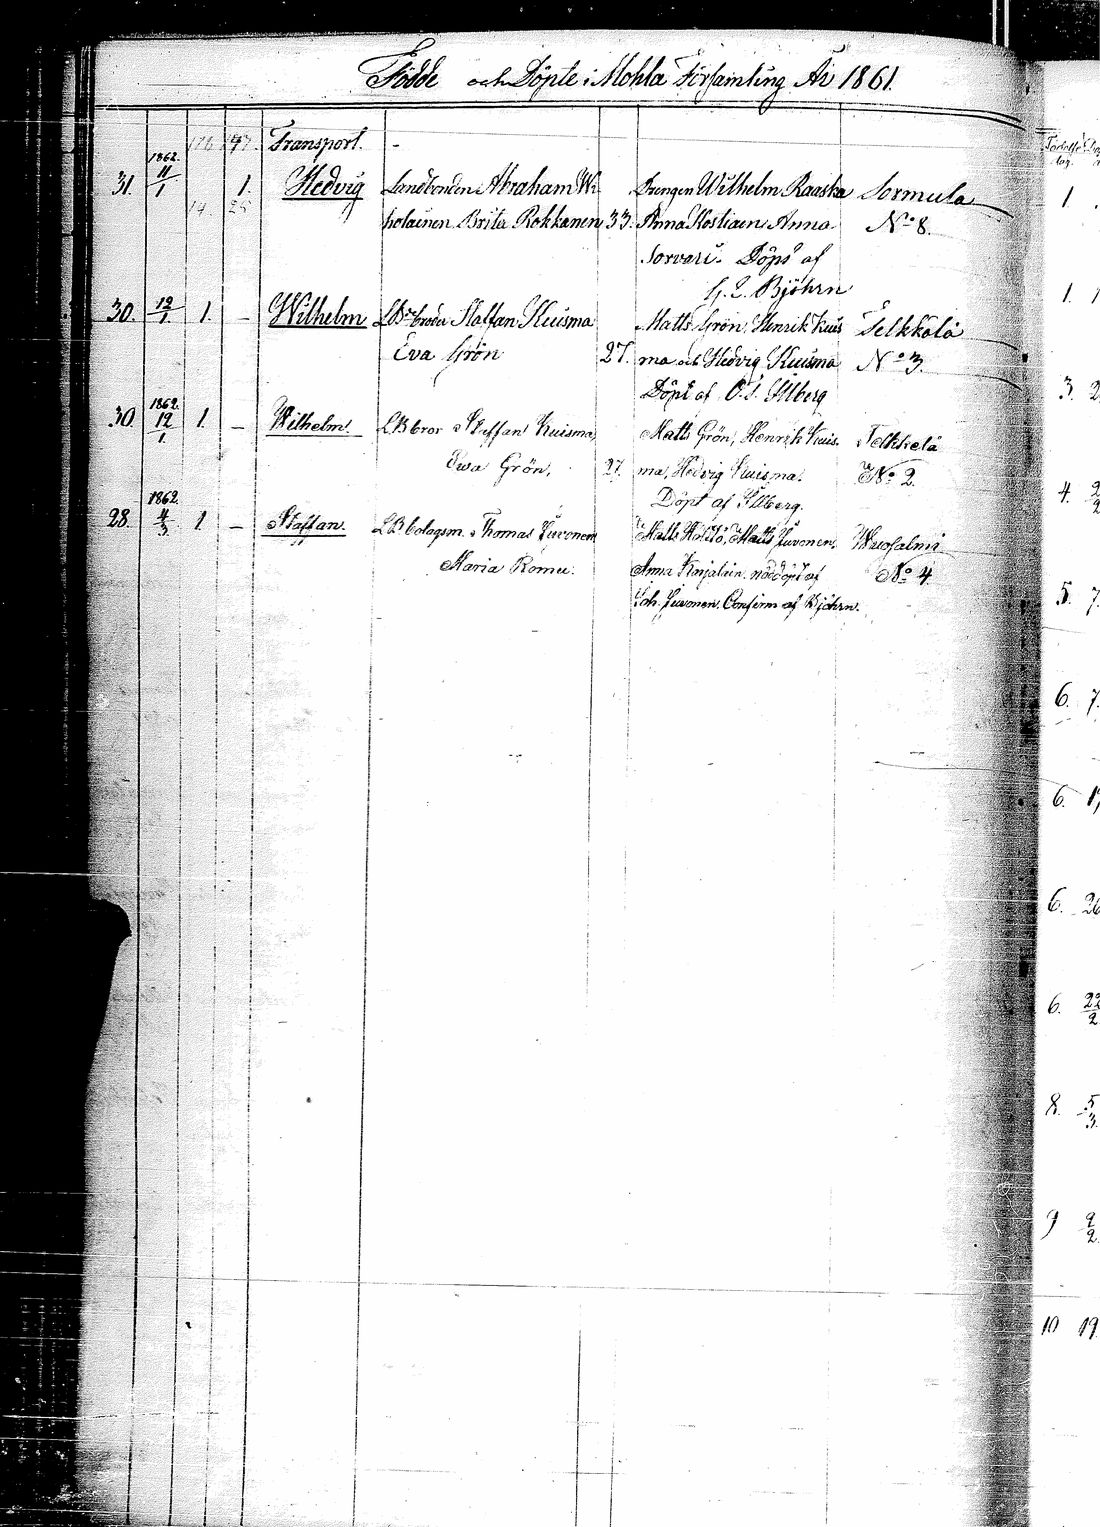 Födde och Döpte i Mohla Församling År 1861.
176 197. Transport. -
31. 1862. 11/1 1. Hedvig Landbonden Abraham Wi- Drengen Wilhelm Raaska Sormula
14 25 holainen Brita Rokkanen 33. Anna Hostiaen Anna No 8.
Sorvari. Döpt af
G. L. Björn
30. 12/1. 1. - Wilhelm Staffan Kuisma Matts Grön, Henrik Kuis Telkkälä
Eva Grön 27. ma och Hedvig Kuisma No 3.
Döpt af Silberg
30. 1862. 12/1. 1. - Wilhelm. LB bror Staffan Kuisma, Matts Grön, Henrik Kuis- Telkkelä
Ewa Grön, 27. ma, Hedvig Kuisma. No 2.
Döpt af Silberg.
28. 1862. 4/3 1 - Staffan. LB bolagsm. Thomas Juvonen Matts Juvonen, Wuosalmi
Maria Romu. Anna nöddöpt af No 4.
Joh. Juvonen. Confirm af Björn.
1
1. 1
3. 2
4. 2/2
5. 7.
6. 7.
6. 1
6. 26
6. 22/2
8. 5/3
9 9/2
10 19.